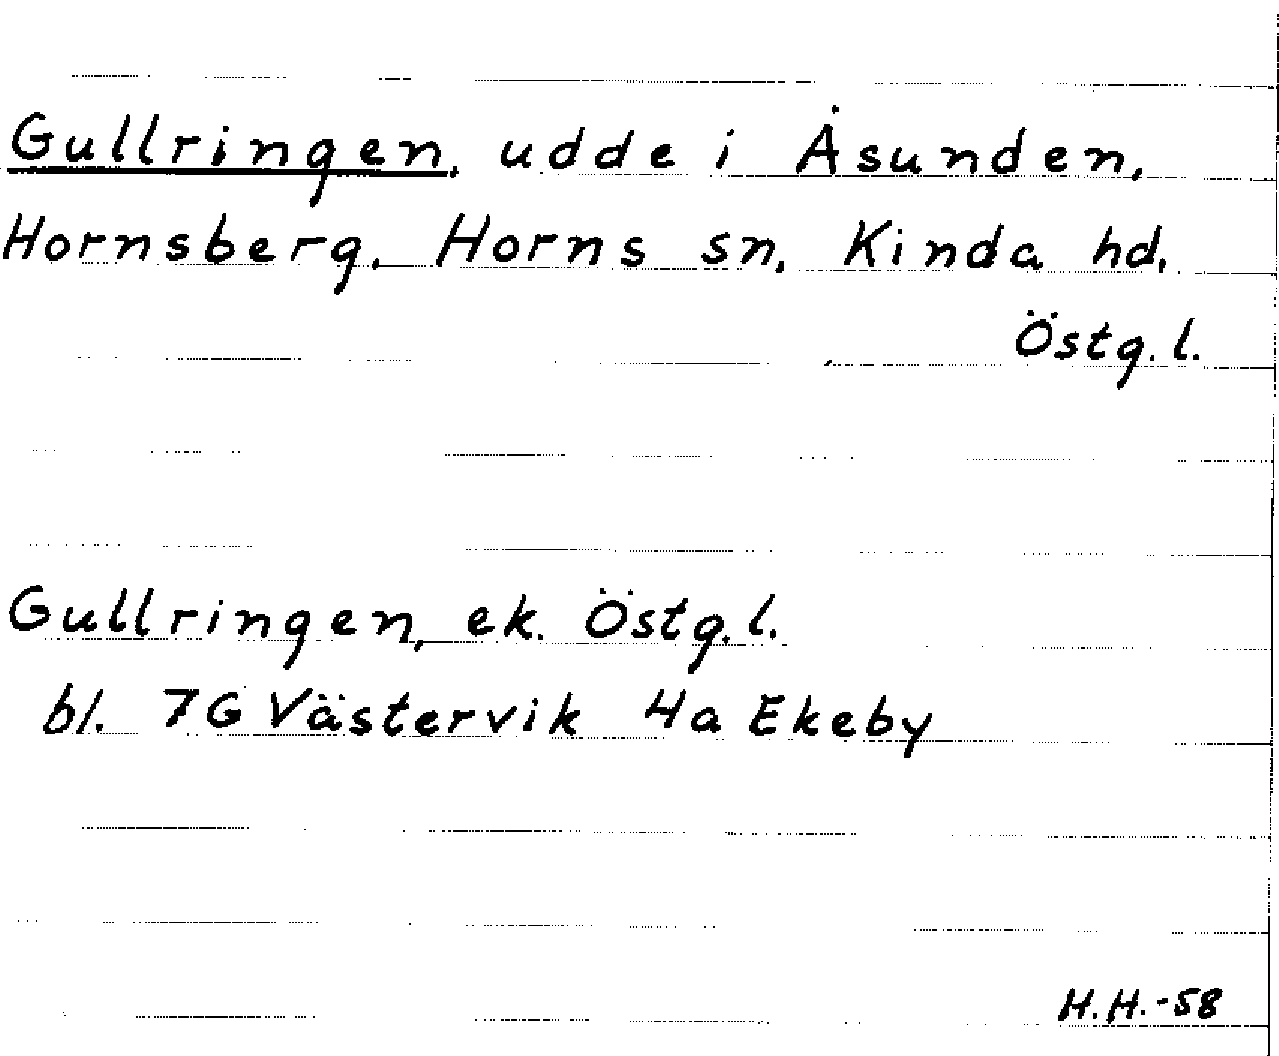 Gullringen, udde i Åsunden,
Hornsberg, Horns sn, Kinda hd,
Östg. l.
Gullringen, ek. Östg. l.
bl. 7G Västervik 4a Ekeby
H.H.-58